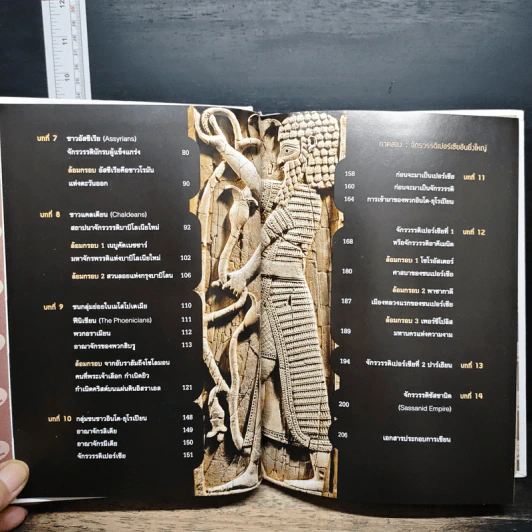 บทที่ 7 ชาวอัสซีเรีย (Assyrians)
จักรวรรดินักรบผู้แข็งแกร่ง 80
ล้อมกรอบ อัสซีเรียคือชาวโรมัน
แห่งตะวันออก 90
บทที่ 8 ชาวแคลเดียน (Chaldeans)
สถาปนาจักรวรรดิบาบิโลเนียใหม่ 92
ล้อมกรอบ 1 เนบูคัดเนซซาร์
มหาจักรพรรดิแห่งบาบิโลเนียใหม่ 102
ล้อมกรอบ 2 สวนลอยแห่งกรุงบาบิโลน 106
บทที่ 9 ชนกลุ่มย่อยในเมโสโปเตเมีย 110
ฟีนิเชียน (The Phoenicians) 111
พวกอราเมียน 112
อาณาจักรของพวกฮิบรู 113
ล้อมกรอบ จากอับราฮัมถึงโซโลมอน
คนที่พระเจ้าเลือก กำเนิดยิว
กำเนิดคริสต์บนแผ่นดินอิสราเอล 121
บทที่ 10 กลุ่มชนชาวอินโด-ยูโรเปียน 148
อาณาจักรลิเดีย 149
อาณาจักรมีเดีย 150
จักรวรรดิเปอร์เซีย 151
ภาคสอง : จักรวรรดิเปอร์เซียอันยิ่งใหญ่
158 ก่อนจะมาเป็นเปอร์เซีย บทที่ 11
160 ก่อนจะมาเป็นจักรวรรดิ
164 การเข้ามาของพวกอินโด-ยูโรเปียน
จักรวรรดิเปอร์เซียที่ 1 บทที่ 12
168 หรือจักรวรรดิอาคีเมนิด
ล้อมกรอบ 1 โซโรอัสเตอร์
180 ศาสนาของชนเปอร์เซีย
ล้อมกรอบ 2 พาซาคาดี
187 เมืองหลวงแรกของชนเปอร์เซีย
ล้อมกรอบ 3 เพอร์ซีโปลิส
189 มหานครแห่งความงาม
194 จักรวรรดิเปอร์เซียที่ 2 ปาร์เธียน บทที่ 13
จักรวรรดิซัสซานิด บทที่ 14
200 (Sassanid Empire)
206 เอกสารประกอบการเขียน